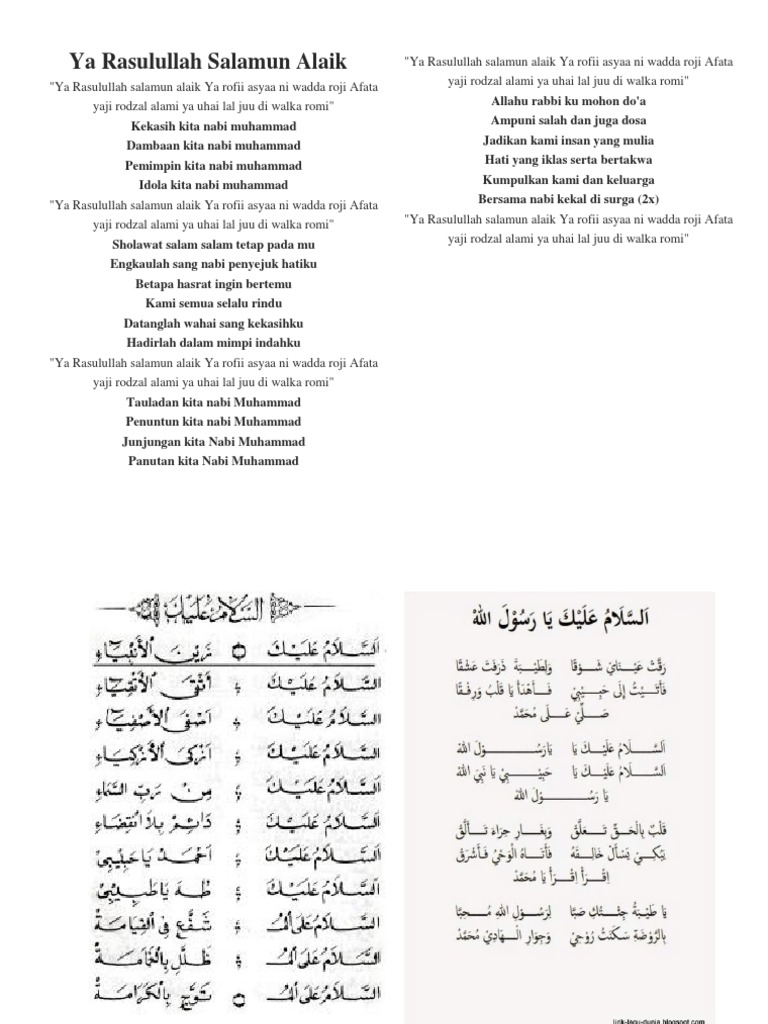 Ya Rasulullah Salamun Alaik
"Ya Rasulullah salamun alaik Ya rofii asyaa ni wadda roji Afata
yaji rodzal alami ya uhai lal juu di walka romi"
Kekasih kita nabi muhammad
Dambaan kita nabi muhammad
Pemimpin kita nabi muhammad
Idola kita nabi muhammad
"Ya Rasulullah salamun alaik Ya rofii asyaa ni wadda roji Afata
yaji rodzal alami ya uhai lal juu di walka romi"
Sholawat salam salam tetap pada mu
Engkaulah sang nabi penyejuk hatiku
Betapa hasrat ingin bertemu
Kami semua selalu rindu
Datanglah wahai sang kekasihku
Hadirlah dalam mimpi indahku
"Ya Rasulullah salamun alaik Ya rofii asyaa ni wadda roji Afata
yaji rodzal alami ya uhai lal juu di walka romi"
Tauladan kita nabi Muhammad
Penuntun kita nabi Muhammad
Junjungan kita Nabi Muhammad
Panutan kita Nabi Muhammad
"Ya Rasulullah salamun alaik Ya rofii asyaa ni wadda roji Afata
yaji rodzal alami ya uhai lal juu di walka romi"
Allahu rabbi ku mohon do'a
Ampuni salah dan juga dosa
Jadikan kami insan yang mulia
Hati yang iklas serta bertakwa
Kumpulkan kami dan keluarga
Bersama nabi kekal di surga (2x)
"Ya Rasulullah salamun alaik Ya rofii asyaa ni wadda roji Afata
yaji rodzal alami ya uhai lal juu di walka romi"
السلام عليك
اَلسَّلَامُ عَلَيْكَ زَيْنَ الْأَنْبِيَاءِ
اَلسَّلَامُ عَلَيْكَ أَتْقَى الْأَتْقِيَاءِ
اَلسَّلَامُ عَلَيْكَ أَصْفَى الْأَصْفِيَاءِ
اَلسَّلَامُ عَلَيْكَ أَزْكَى الْأَزْكِيَاءِ
اَلسَّلَامُ عَلَيْكَ مِنْ رَبِّ السَّمَاءِ
اَلسَّلَامُ عَلَيْكَ دَائِمْ بِلَا انْقِضَاءِ
اَلسَّلَامُ عَلَيْكَ أَحْمَدْ يَا حَبِيْبِيْ
اَلسَّلَامُ عَلَيْكَ طٰهَ يَا طَبِيْبِيْ
اَلسَّلَامُ عَلَى الْمُ شَفَّعْ فِي الْقِيَامَةْ
اَلسَّلَامُ عَلَى الْمُ ظَلَّلْ بِالْغَمَامَةْ
اَلسَّلَامُ عَلَى الْمُ تَوَّجْ بِالْكَرَامَةْ
اَلسَّلَامُ عَلَيْكَ يَا رَسُوْلَ اللهْ
رَقَّتْ عَيْنَايَ شَوْقًا وَلِطَيْبَةَ ذَرَفَتْ عَشْقًا
فَأَتَيْتُ إِلَى حَبِيْبِيْ فَاهْدَأْ يَا قَلْبُ وَرِفْقًا
صَلِّ عَلَى مُحَمَّدْ
اَلسَّلَامُ عَلَيْكَ يَا يَارَسُوْلَ اللهْ
اَلسَّلَامُ عَلَيْكَ يَا حَبِيْبِيْ يَا نَبِيَّ اللهْ
يَا رَسُوْلَ اللهْ
قَلْبٌ بِالْحَقِّ تَعَلَّقْ وَبِغَارِ حِرَاءَ تَأَلَّقْ
يَبْكِيْ يَسْأَلُ خَالِقَهُ فَأَتَاهُ الْوَحْيُ فَأَشْرَقْ
اِقْرَأْ اِقْرَأْ يَا مُحَمَّدْ
يَا طَيْبَةُ جِئْتُكِ صَبًّا لِرَسُوْلِ اللهِ مُحِبًّا
بِالرَّوْضَةِ سَكَنَتْ رُوْحِيْ وَجِوَارِ الْهَادِيْ مُحَمَّدْ
lirik-lagu-dunia.blogspot.com